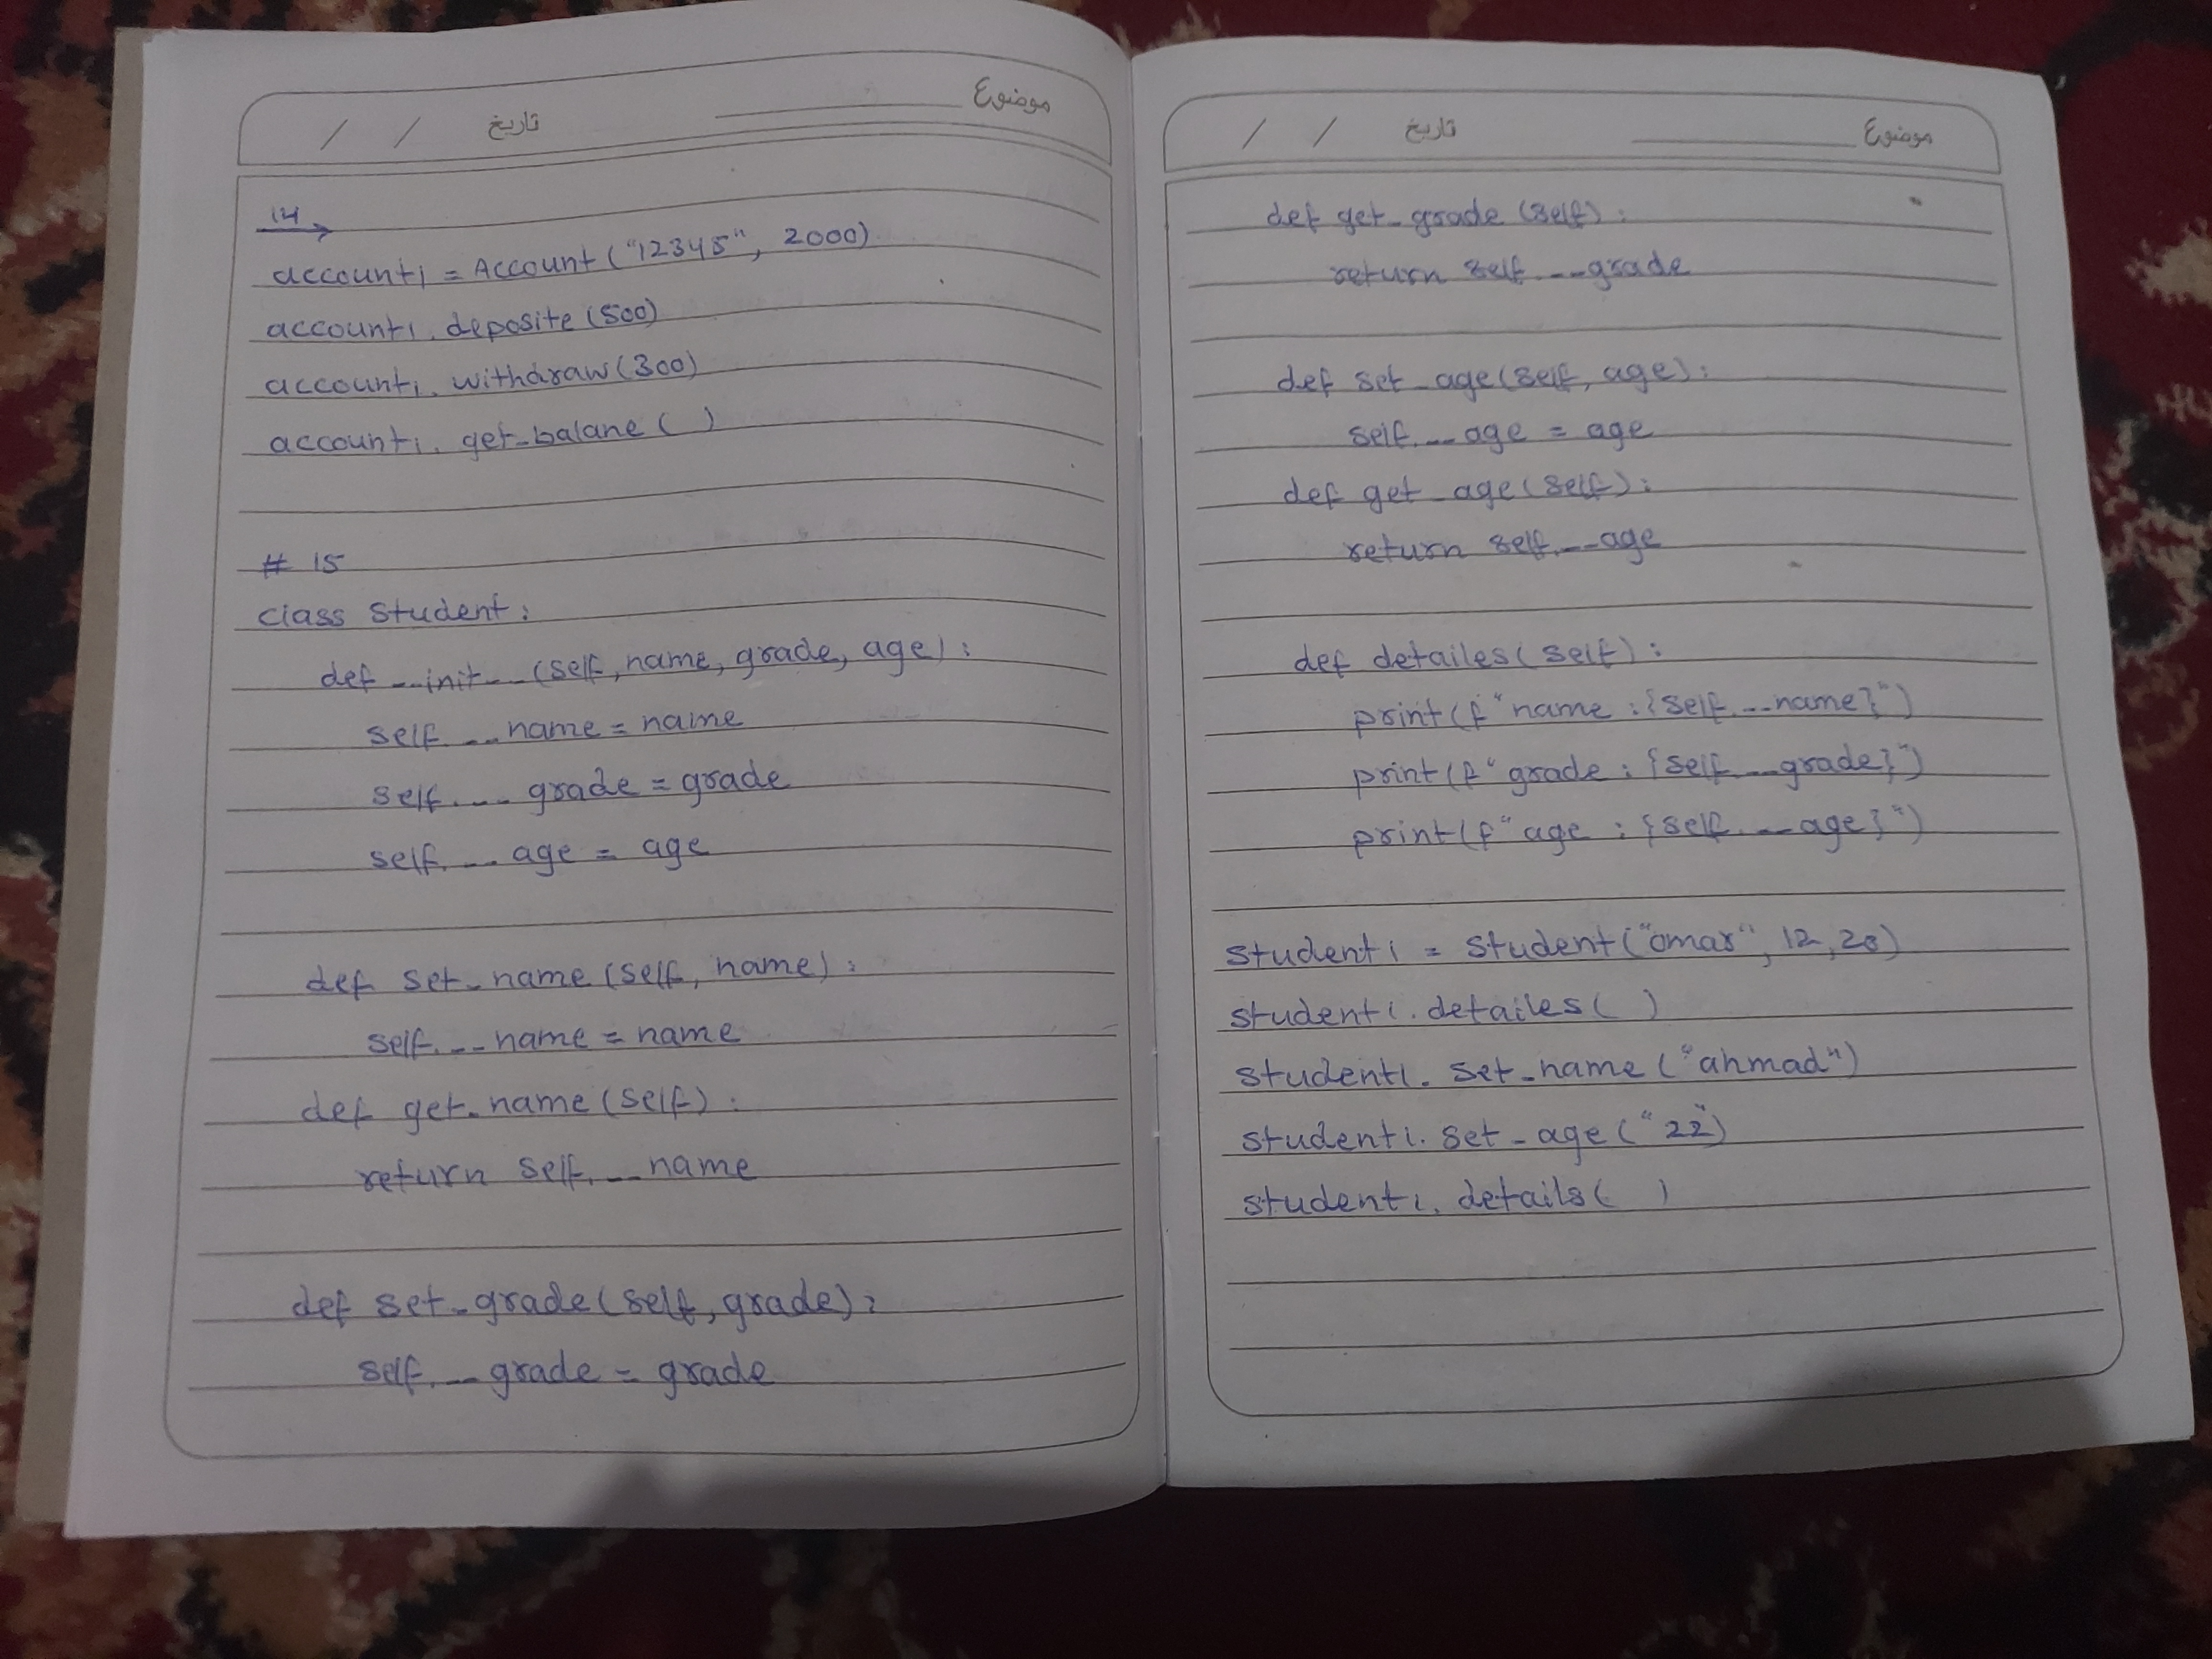 موضوع
تاریخ / /
14
account1 = Account ("12345", 2000)
account1. deposite (500)
account1. withdraw (300)
account1. get_balane ( )
# 15
class Student:
def __init__ (self, name, grade, age):
self.__name = name
self.__grade = grade
self.__age = age
def set_name (self, name):
self.__name = name
def get_name (self):
return self.__name
def set_grade (self, grade):
self.__grade = grade
موضوع
تاریخ / /
def get_grade (self):
return self.__grade
def set_age (self, age):
self.__age = age
def get_age (self):
return self.__age
def detailes (self):
print (f"name : {self.__name}")
print (f"grade : {self.__grade}")
print (f"age : {self.__age}")
student1 = student ("omar", 12, 20)
student1. detailes ( )
student1. set_name ("ahmad")
student1. set_age ("22")
student1. details ( )